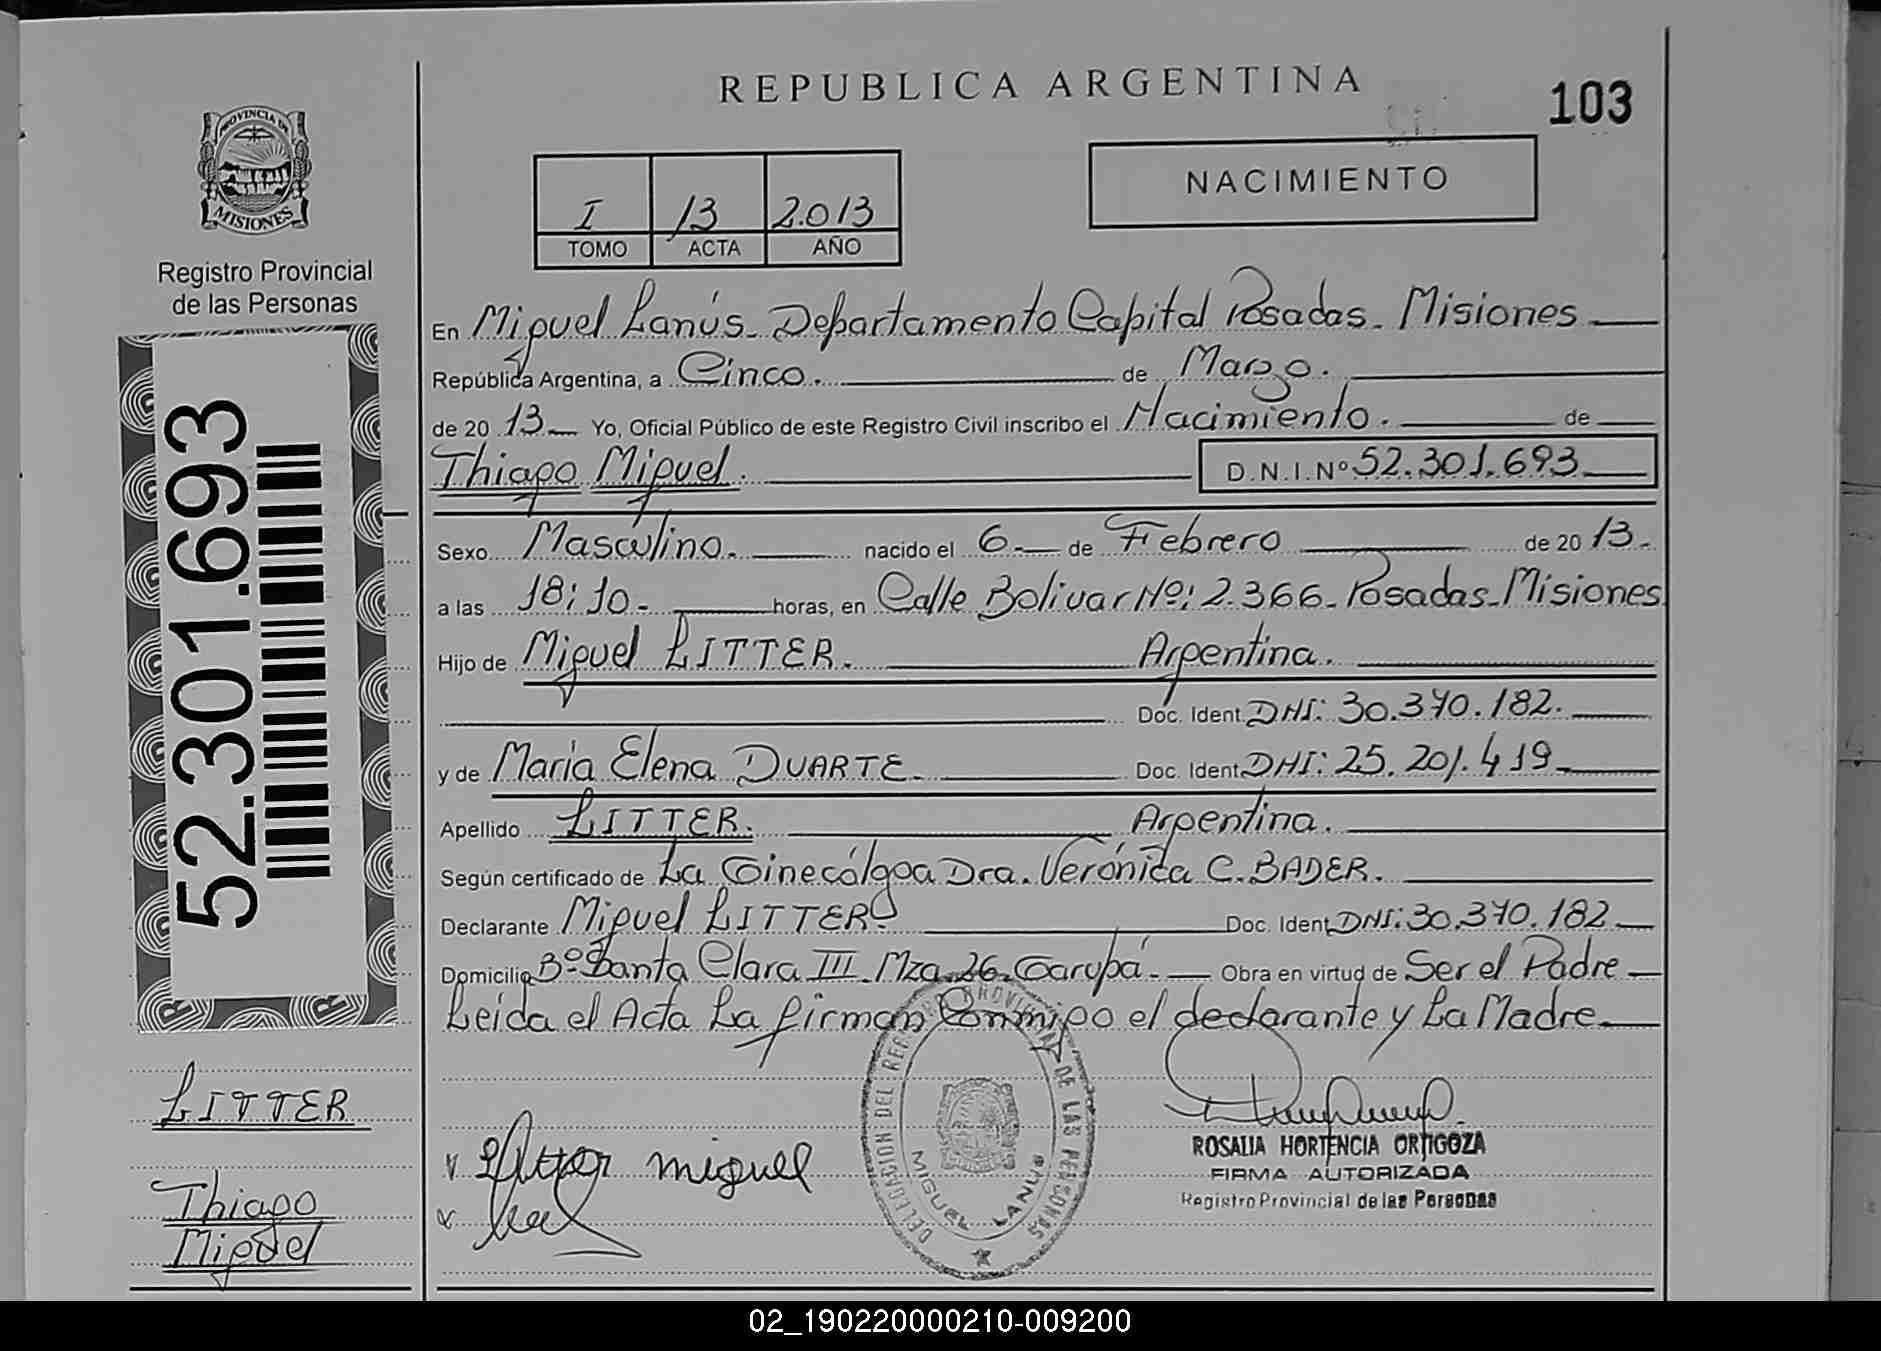 REPUBLICA ARGENTINA
103
NACIMIENTO
I 13 2.013
TOMO ACTA AÑO
PROVINCIA DE
MISIONES
Registro Provincial
de las Personas
52.301.693
En Miguel Lanús. Departamento Capital Posadas. Misiones
República Argentina, a Cinco. de Marzo.
de 20 13 Yo, Oficial Público de este Registro Civil inscribo el Nacimiento. de
Thiago Miguel. D.N.I.Nº 52.301.693
Sexo Masculino. nacido el 6 de Febrero de 20 13.
a las 18:10 horas, en Calle Bolivar Nº: 2.366. Posadas. Misiones
Hijo de Miguel LITTER. Argentina.
Doc. Ident. DNI: 30.370.182.
y de Maria Elena DUARTE. Doc. Ident. DNI: 25.201.419
Apellido LITTER. Argentina.
Según certificado de La Ginecólgoa Dra. Verónica C. BADER.
Declarante Miguel LITTER. Doc. Ident. DNI: 30.370.182
Domicilio Bº Santa Clara III Mza 26. Garupá. Obra en virtud de Ser el Padre
Leida el Acta La firman Conmigo el declarante y La Madre
LITTER
Thiago
Miguel
Litter miguel
DELEGACION DEL REGISTRO PROVINCIAL DE LAS PERSONAS
MIGUEL LANUS
ROSALIA HORTENCIA ORTIGOZA
FIRMA AUTORIZADA
Registro Provincial de las Personas
02_190220000210-009200